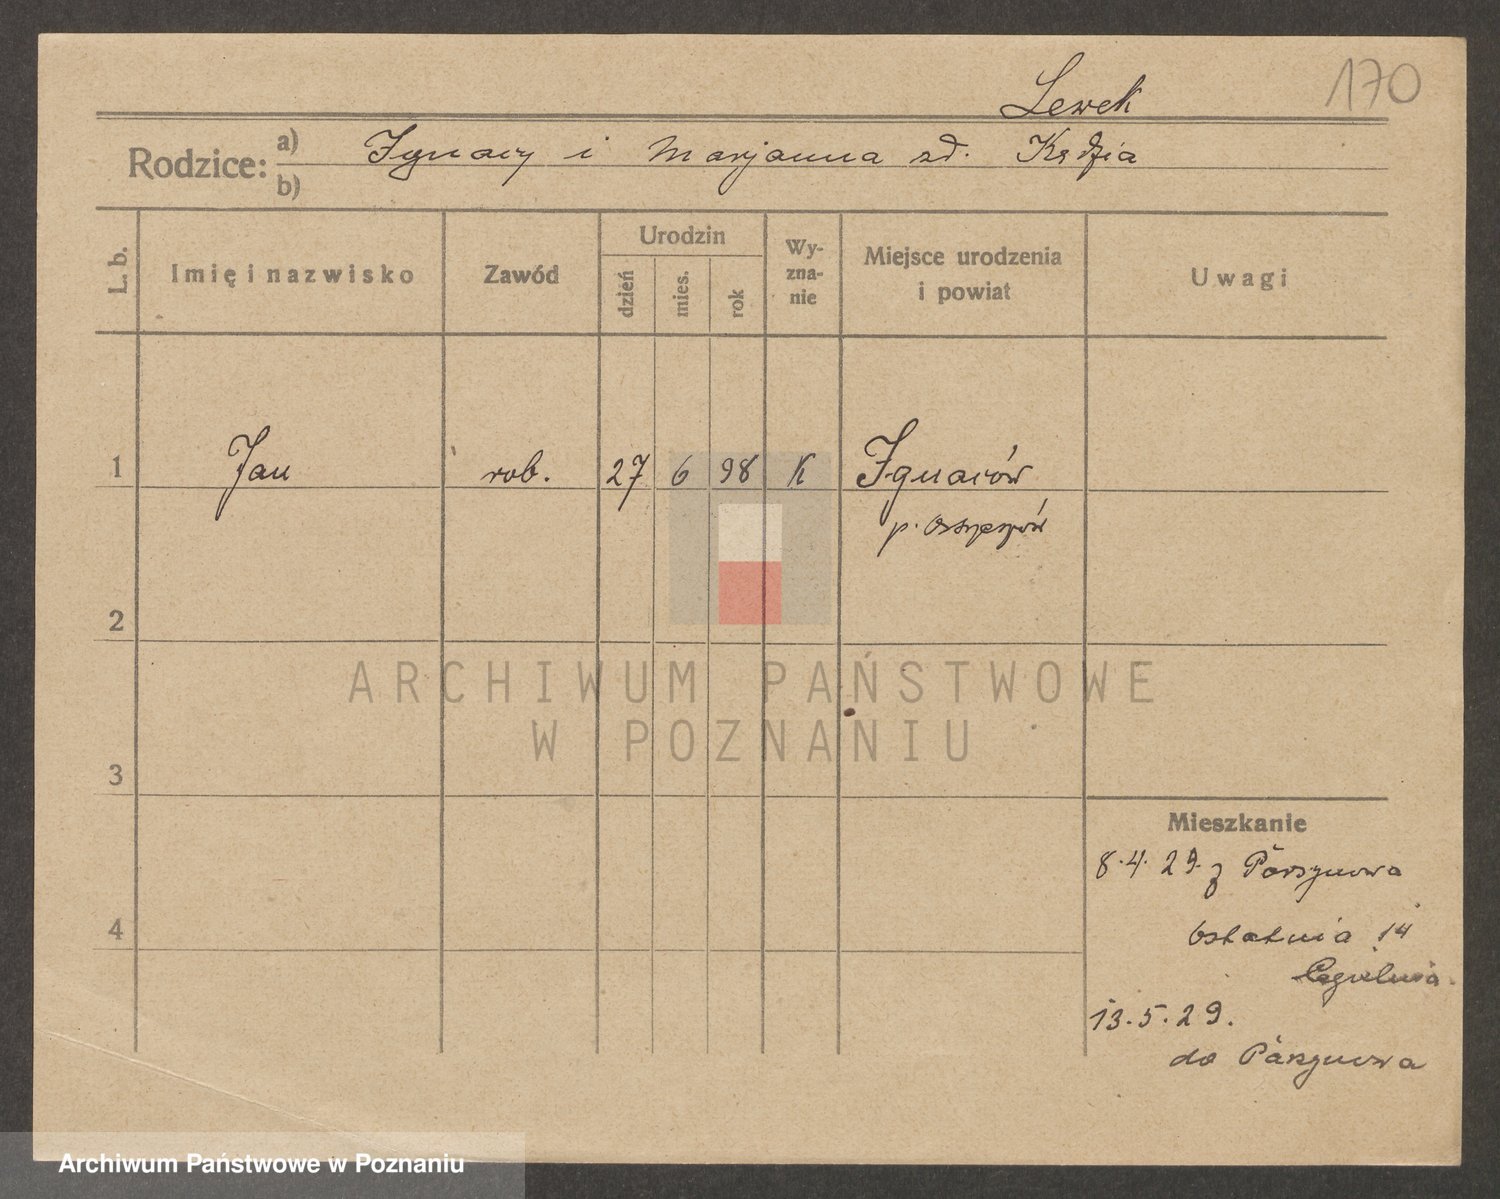 170
Lewek
Rodzice: a) Ignacy i Marjanna zd. Kędzia
b)
L. b.
Imię i nazwisko
Zawód
Urodzin
dzień
mies.
rok
Wy-
zna-
nie
Miejsce urodzenia
i powiat
Uwagi
1 Jan rob. 27 6 98 K Ignaców
p. Ostrzeszów
2
3
4
Mieszkanie
8.4.29. z Parzynowa
Ostatnia 14
Cegielnia.
13.5.29.
do Parzynowa
ARCHIWUM PAŃSTWOWE
W POZNANIU
Archiwum Państwowe w Poznaniu